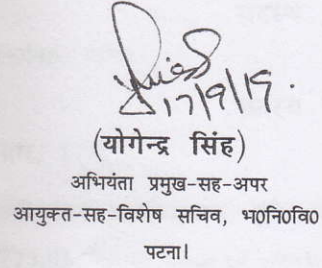 17/9/19.
(योगेन्द्र सिंह)
अभियंता प्रमुख-सह-अपर
आयुक्त-सह-विशेष सचिव, भ0नि0वि0
पटना।